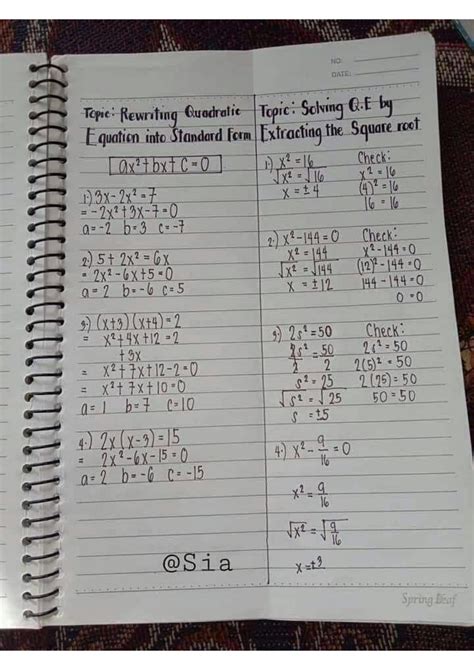 NO:
DATE:
Topic: Rewriting Quadratic
Equation into Standard Form
ax²+bx+c=0
1.) 3x-2x²=7
= -2x²+3x-7=0
a=-2 b=3 c=-7
2.) 5+2x²=6x
= 2x²-6x+5=0
a=2 b=-6 c=5
3.) (x+3)(x+4)=2
= x²+4x+12=2
+3x
= x²+7x+12-2=0
= x²+7x+10=0
a=1 b=7 c=10
4.) 2x(x-3)=15
= 2x²-6x-15=0
a=2 b=-6 c=-15
@Sia
Topic: Solving Q.E by
Extracting the Square root
1.) x²=16 Check:
√x²=√16 x²=16
x=±4 (4)²=16
16=16
2.) x²-144=0 Check:
x²=144 x²-144=0
√x²=√144 (12)²-144=0
x=±12 144-144=0
0=0
3.) 2s²=50 Check:
2s²/2=50/2 2s²=50
s²=25 2(5)²=50
√s²=√25 2(25)=50
s=±5 50=50
4.) x²-9/16=0
x²=9/16
√x²=√9/16
x=±3
Spring Leaf